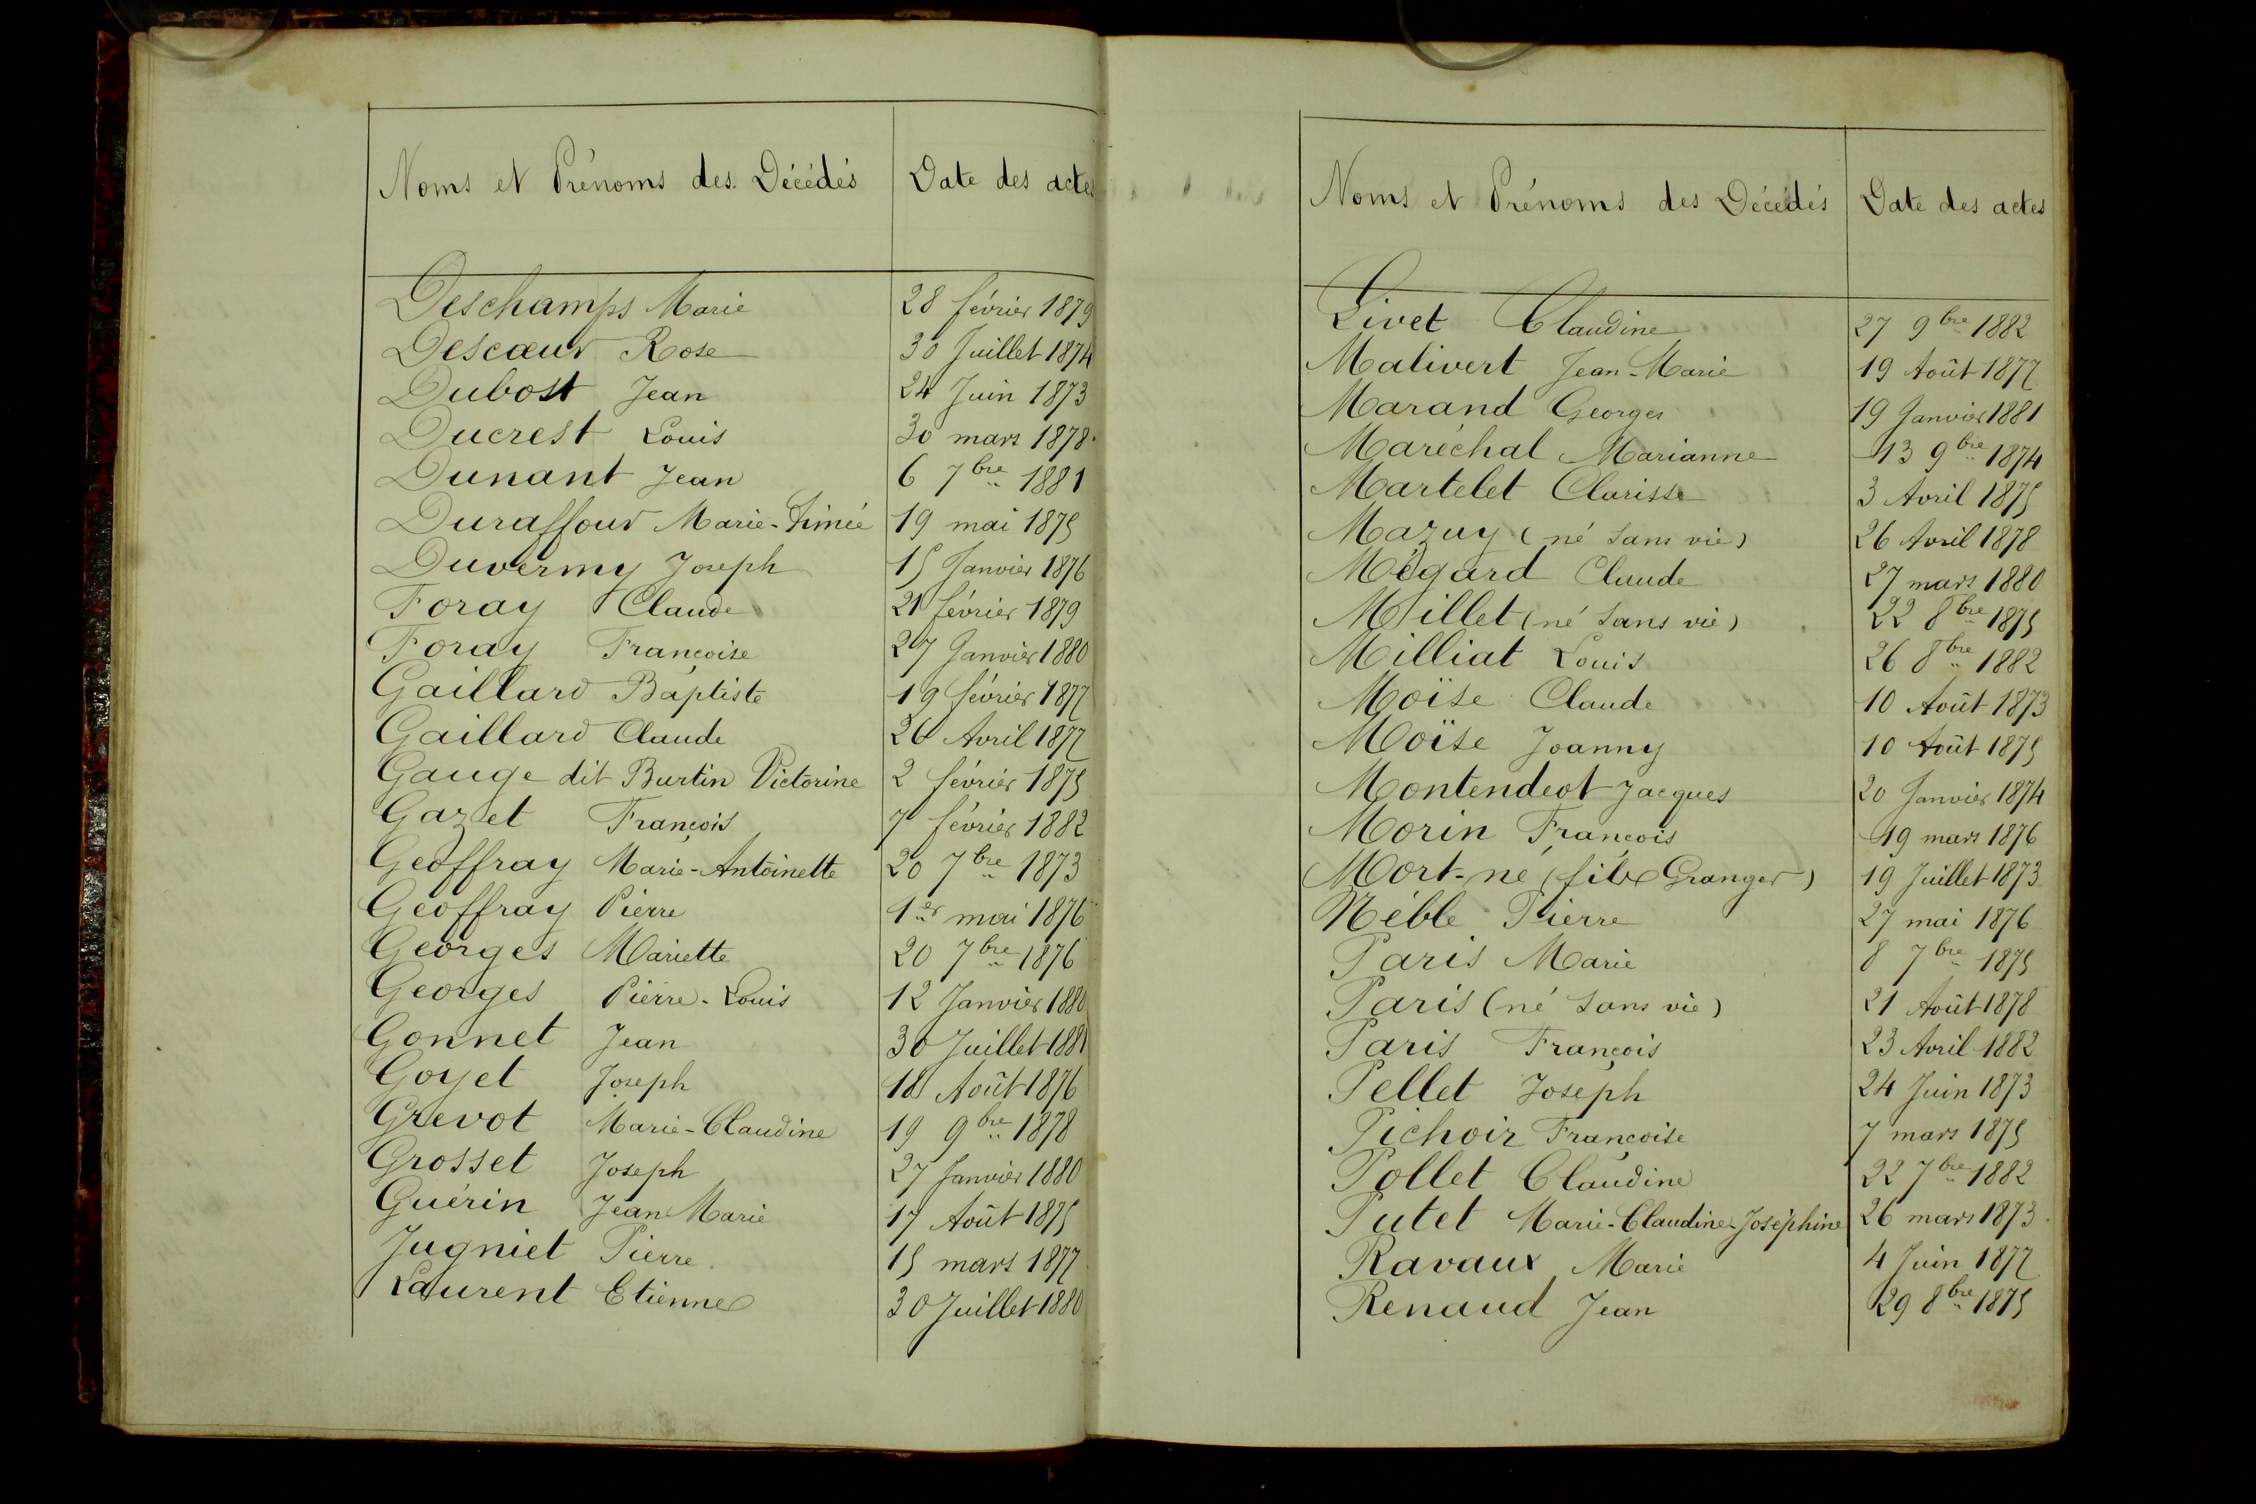 Noms et Prénoms des Décédés Date des actes
Deschamps Marie 28 février 1879
Descœur Rose 30 Juillet 1874
Dubost Jean 24 Juin 1873
Ducrest Louis 30 mars 1878
Dunant Jean 6 7bre 1881
Duraffour Marie-Aimée 19 mai 1875
Duvermy Joseph 15 Janvier 1876
Foray Claude 21 février 1879
Foray Françoise 27 Janvier 1880
Gaillard Baptiste 19 février 1877
Gaillard Claude 26 Avril 1877
Gauge dit Burtin Victorine 2 février 1875
Gazet François 7 février 1882
Geoffray Marie-Antoinette 20 7bre 1873
Geoffray Pierre 1er mai 1876
Georges Mariette 20 7bre 1876
Georges Pierre-Louis 12 Janvier 1880
Gonnet Jean 30 Juillet 1881
Goyet Joseph 18 Août 1876
Grevot Marie-Claudine 19 9bre 1878
Grosset Joseph 27 Janvier 1880
Guérin Jean Marie 17 Août 1875
Jugniet Pierre 15 mars 1877
Laurent Etienne 30 Juillet 1880
Noms et Prénoms des Décédés Date des actes
Livet Claudine 27 9bre 1882
Malivert Jean-Marie 19 Août 1877
Marand Georges 19 Janvier 1881
Maréchal Marianne 13 9bre 1874
Martelet Clarisse 3 Avril 1875
Mazuy (né sans vie) 26 Avril 1878
Mégard Claude 27 mars 1880
Millet (né sans vie) 22 8bre 1875
Milliat Louis 26 8bre 1882
Moïse Claude 10 Août 1873
Moïse Joanny 10 Août 1875
Montendeot Jacques 20 Janvier 1874
Morin François 19 mars 1876
Mort-né (fils Granger) 19 Juillet 1873
Néble Pierre 27 mai 1876
Paris Marie 8 7bre 1875
Paris (né sans vie) 21 Août 1878
Paris François 23 Avril 1882
Pellet Joseph 24 Juin 1873
Pichoir Françoise 7 mars 1875
Pollet Claudine 22 7bre 1882
Putet Marie-Claudine-Joséphine 26 mars 1873
Ravaux Marie 4 Juin 1877
Renaud Jean 29 8bre 1875